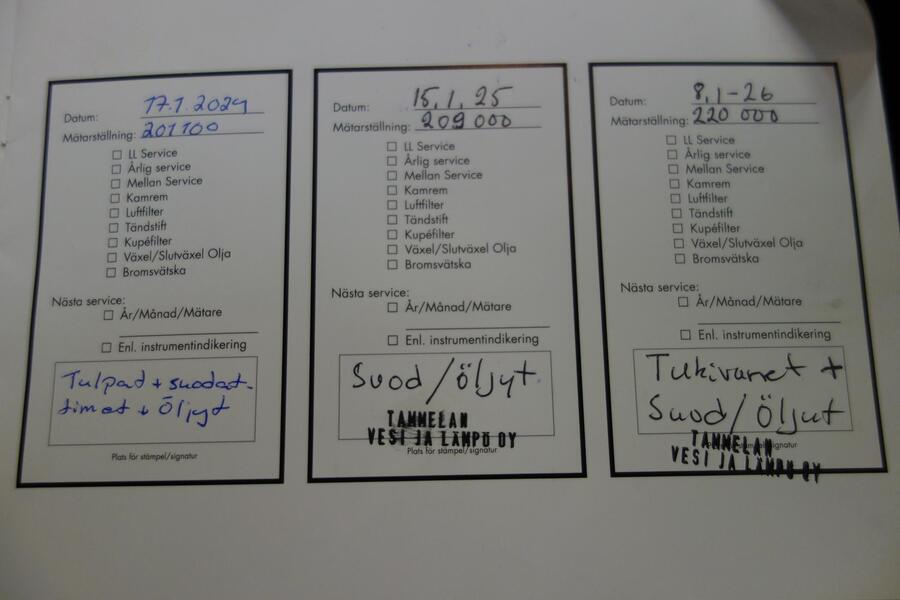 Datum: 17.1.2024
Mätarställning: 201100
LL Service
Årlig service
Mellan Service
Kamrem
Luftfilter
Tändstift
Kupéfilter
Växel/Slutväxel Olja
Bromsvätska
Nästa service:
År/Månad/Mätare
Enl. instrumentindikering
Tulpat + suodat-
timet + Öljyt
Plats för stämpel/signatur
Datum: 15.1.25
Mätarställning: 209 000
LL Service
Årlig service
Mellan Service
Kamrem
Luftfilter
Tändstift
Kupéfilter
Växel/Slutväxel Olja
Bromsvätska
Nästa service:
År/Månad/Mätare
Enl. instrumentindikering
Suod/öljyt
TAMMELAN
VESI JA LÄMPÖ OY
Plats för stämpel/signatur
Datum: 8.1-26
Mätarställning: 220 000
LL Service
Årlig service
Mellan Service
Kamrem
Luftfilter
Tändstift
Kupéfilter
Växel/Slutväxel Olja
Bromsvätska
Nästa service:
År/Månad/Mätare
Enl. instrumentindikering
Tukivarret +
Suod/Öljyt
TAMMELAN
VESI JA LÄMPÖ OY